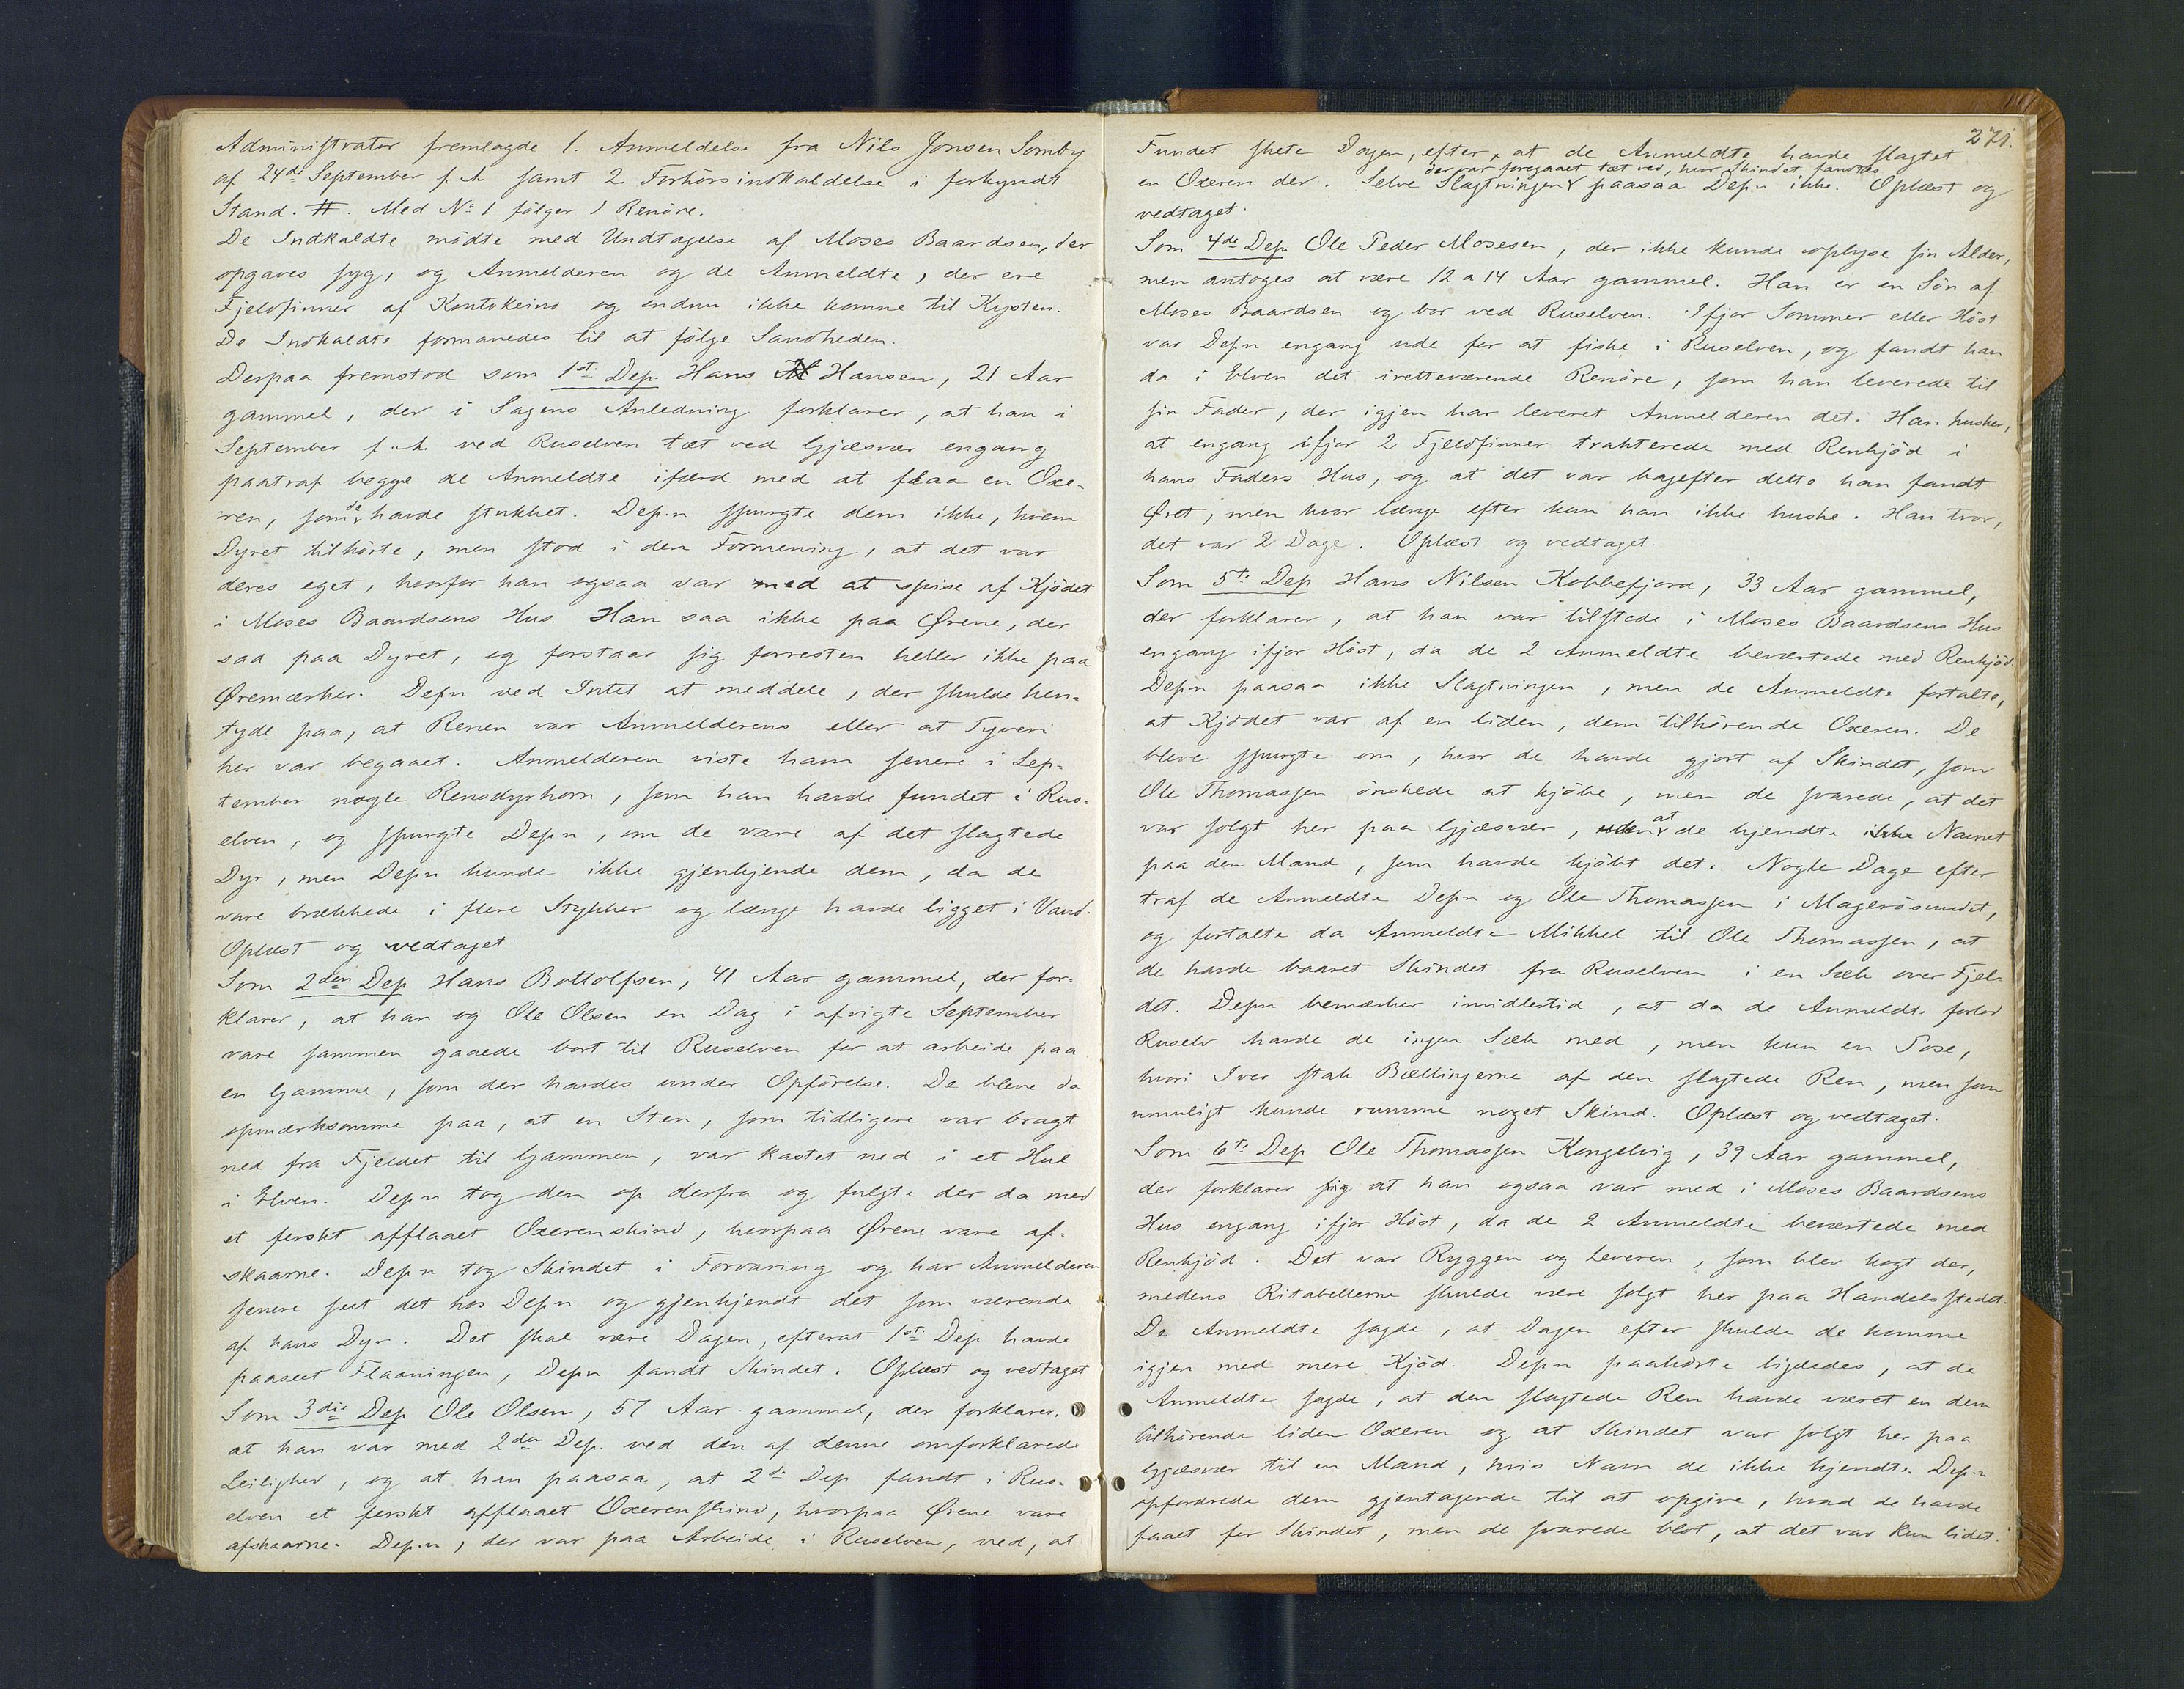 Administrator fremlagde 1. Anmeldelse fra Nils Jonsen Somby
af 24de September f. A. samt 2 Forhörsindkaldelse i forkyndt
Stand. #. Med No 1 fölger 1 Renöre.
De Indkaldte mödte med Undtagelse af Moses Baardsen, der
opgaves syg, og Anmelderen og de Anmeldte, der ere
Fjeldfinner af Kautokeino og endnu ikke komne til Kysten.
De Indkaldte formanedes til at fölge Sandheden.
Derpaa fremstod som 1ste Dep. Hans Hansen, 21 Aar
gammel, der i Sagens Anledning forklarer, at han i
September f. A. ved Ruselven tæt ved Gjæsvær engang
paatraf begge de Anmeldte ifærd med at flaa en Oxe-
ren, som de havde stukket. Dep.n spurgte dem ikke, hvem
Dyret tilhörte, men stod i den Formening, at det var
deres eget, hvorfor han ogsaa var med at spise af Kjödet
i Moses Baardsens Hus. Han saa ikke paa Ørene, der
saa paa Dyret, og forstaar sig forresten heller ikke paa
Øremærker. Dep.n ved Intet at meddele, der skulde hen-
tyde paa, at Renen var Anmelderens eller at Tyveri
her var begaaet. Anmelderen viste ham senere i Sep-
tember nogle Rensdyrhorn, som han havde fundet i Rus-
elven, og spurgte Dep.n, om de vare af det slagtede
Dyr, men Dep.n kunde ikke gjenkjende dem, da de
vare brækkede i flere Stykker og længe havde ligget i Vand.
Oplæst og vedtaget.
Som 2den Dep Hans Bottolfsen, 41 Aar gammel, der for-
klarer, at han og Ole Olsen en Dag i afvigte September
vare sammen gaaede bort til Ruselven for at arbeide paa
en Gamme, som der havdes under Opförelse. De bleve da
opmærksomme paa, at en Sten, som tidligere var bragt
ned fra Fjeldet til Gammen, var kastet ned i et Hul
i Elven. Dep.n tog den op derfra og fulgte der da med
et ferskt afflaaet Oxerenskind, hvorpaa Ørene vare af-
skaarne. Dep.n tog Skindet i Forvaring og har Anmelderen
senere seet det hos Dep.n og gjenkjendt det som værende
af hans Dyr. Det skal være Dagen, efterat 1ste Dep havde
paaseet Flaaningen, Dep.n fandt Skindet. Oplæst og vedtaget
Som 3die Dep Ole Olsen, 57 Aar gammel, der forklarer,
at han var med 2den Dep. ved den af denne omforklarede
Leilighed, og at han paasaa, at 2de Dep fandt i Rus-
elven et ferskt afflaaet Oxerenskind, hvorpaa Ørene vare
afskaarne. Dep.n, der var paa Arbeide i Ruselven, ved, at
271.
Fundet skete Dagen, efter, at de Anmeldte havde slagtet
der var foregaaet tæt ved, hvor Skindet fandtes
en Oxeren der. Selve Slagtningen paasaa Dep.n ikke. Oplæst og
vedtaget.
Som 4de Dep Ole Peder Mosesen, der ikke kunde oplyse sin Alder,
men antoges at være 12 a 14 Aar gammel. Han er en Sön af
Moses Baardsen og bor ved Ruselven. Ifjor Sommer eller Höst
var Dep.n engang ude for at fiske i Ruselven, og fandt han
da i Elven det iretteværende Renöre, som han leverede til
sin Fader, der igjen har leveret Anmelderen det. Han husker,
at engang ifjor 2 Fjeldfinner trakterede med Renkjöd i
hans Faders Hus, og at det var bagefter dette han fandt
Øret, men hvor længe efter kan han ikke huske. Han tror,
det var 2 Dage. Oplæst og vedtaget.
Som 5te Dep Hans Nilsen Kobbefjord, 33 Aar gammel,
der forklarer, at han var tilstede i Moses Baardsens Hus
engang ifjor Höst, da de 2 Anmeldte beværtede med Renkjöd.
Dep.n paasaa ikke Slagtningen, men de Anmeldte fortalte,
at Kjödet var af en liden, dem tilhörende Oxeren. De
bleve spurgte om, hvor de havde gjort af Skindet, som
Ole Thomassen önskede at kjöbe, men de svarede, at det
var solgt her paa Gjæsvær, uden at de kjendte ikke Navnet
paa den Mand, som havde kjöbt det. Nogle Dage efter
traf de Anmeldte Dep.n og Ole Thomassen i Magerösundet,
og fortalte da Anmeldte Mikkel til Ole Thomassen, at
de havde baaret Skindet fra Ruselven i en Sæk over Fjel-
det. Dep.n bemærker imidlertid, at da de Anmeldte forlod
Ruselv havde de ingen Sæk med, men kun en Pose,
hvori Iver stak Bællingerne af den slagtede Ren, men som
umuligt kunde rumme noget Skind. Oplæst og vedtaget.
Som 6te Dep Ole Thomassen Kongelvig, 39 Aar gammel,
der forklarer sig at han ogsaa var med i Moses Baardsens
Hus engang ifjor Höst, da de 2 Anmeldte beværtede med
Renkjöd. Det var Ryggen og Leveren, som blev kogt der,
medens Ritabellerne skulde være solgt her paa Handelsstedet.
De Anmeldte sagde, at Dagen efter skulde de komme
igjen med mere Kjöd. Dep.n paahörte ligeledes, at de
Anmeldte sagde, at den slagtede Ren havde været en dem
tilhörende liden Oxeren og at Skindet var solgt her paa
Gjæsvær til en Mand, hvis Navn de ikke kjendte. Dep.n
opfordrede dem gjentagende til at opgive, hvad de havde
faaet for Skindet, men de svarede blot, at det var kun lidet.